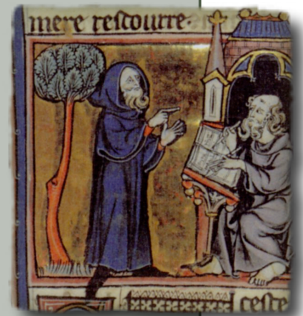 mere rescourre.
ceste